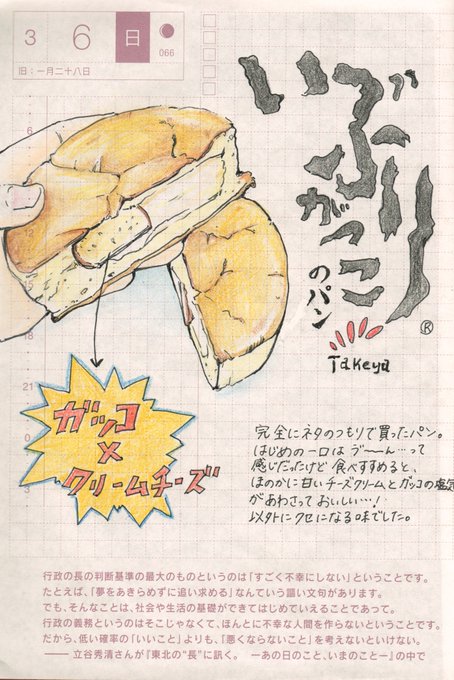 3 6 日
066
旧：一月二十八日
いぶり
がっこ
のパン
®
Takeya
6
12
18
21
ガッコ
×
クリームチーズ
完全にネタのつもりで買ったパン。
はじめの一口は ゔ〜〜ん…って
感じだったけど 食べすすめると、
ほのかに甘いチーズクリームとガッコの塩気
があわさっておいしい…！
以外にクセになる味でした。
行政の長の判断基準の最大のものというのは「すごく不幸にしない」ということです。
たとえば、「夢をあきらめずに追い求める」なんていう謳い文句があります。
でも、そんなことは、社会や生活の基礎ができてはじめていえることであって。
行政の義務というのはそこじゃなくて、ほんとに不幸な人間を作らないということです。
だから、低い確率の「いいこと」よりも、「悪くならないこと」を考えないといけない。
—— 立谷秀清さんが『東北の“長”に訊く。 ーあの日のこと、いまのことー』の中で